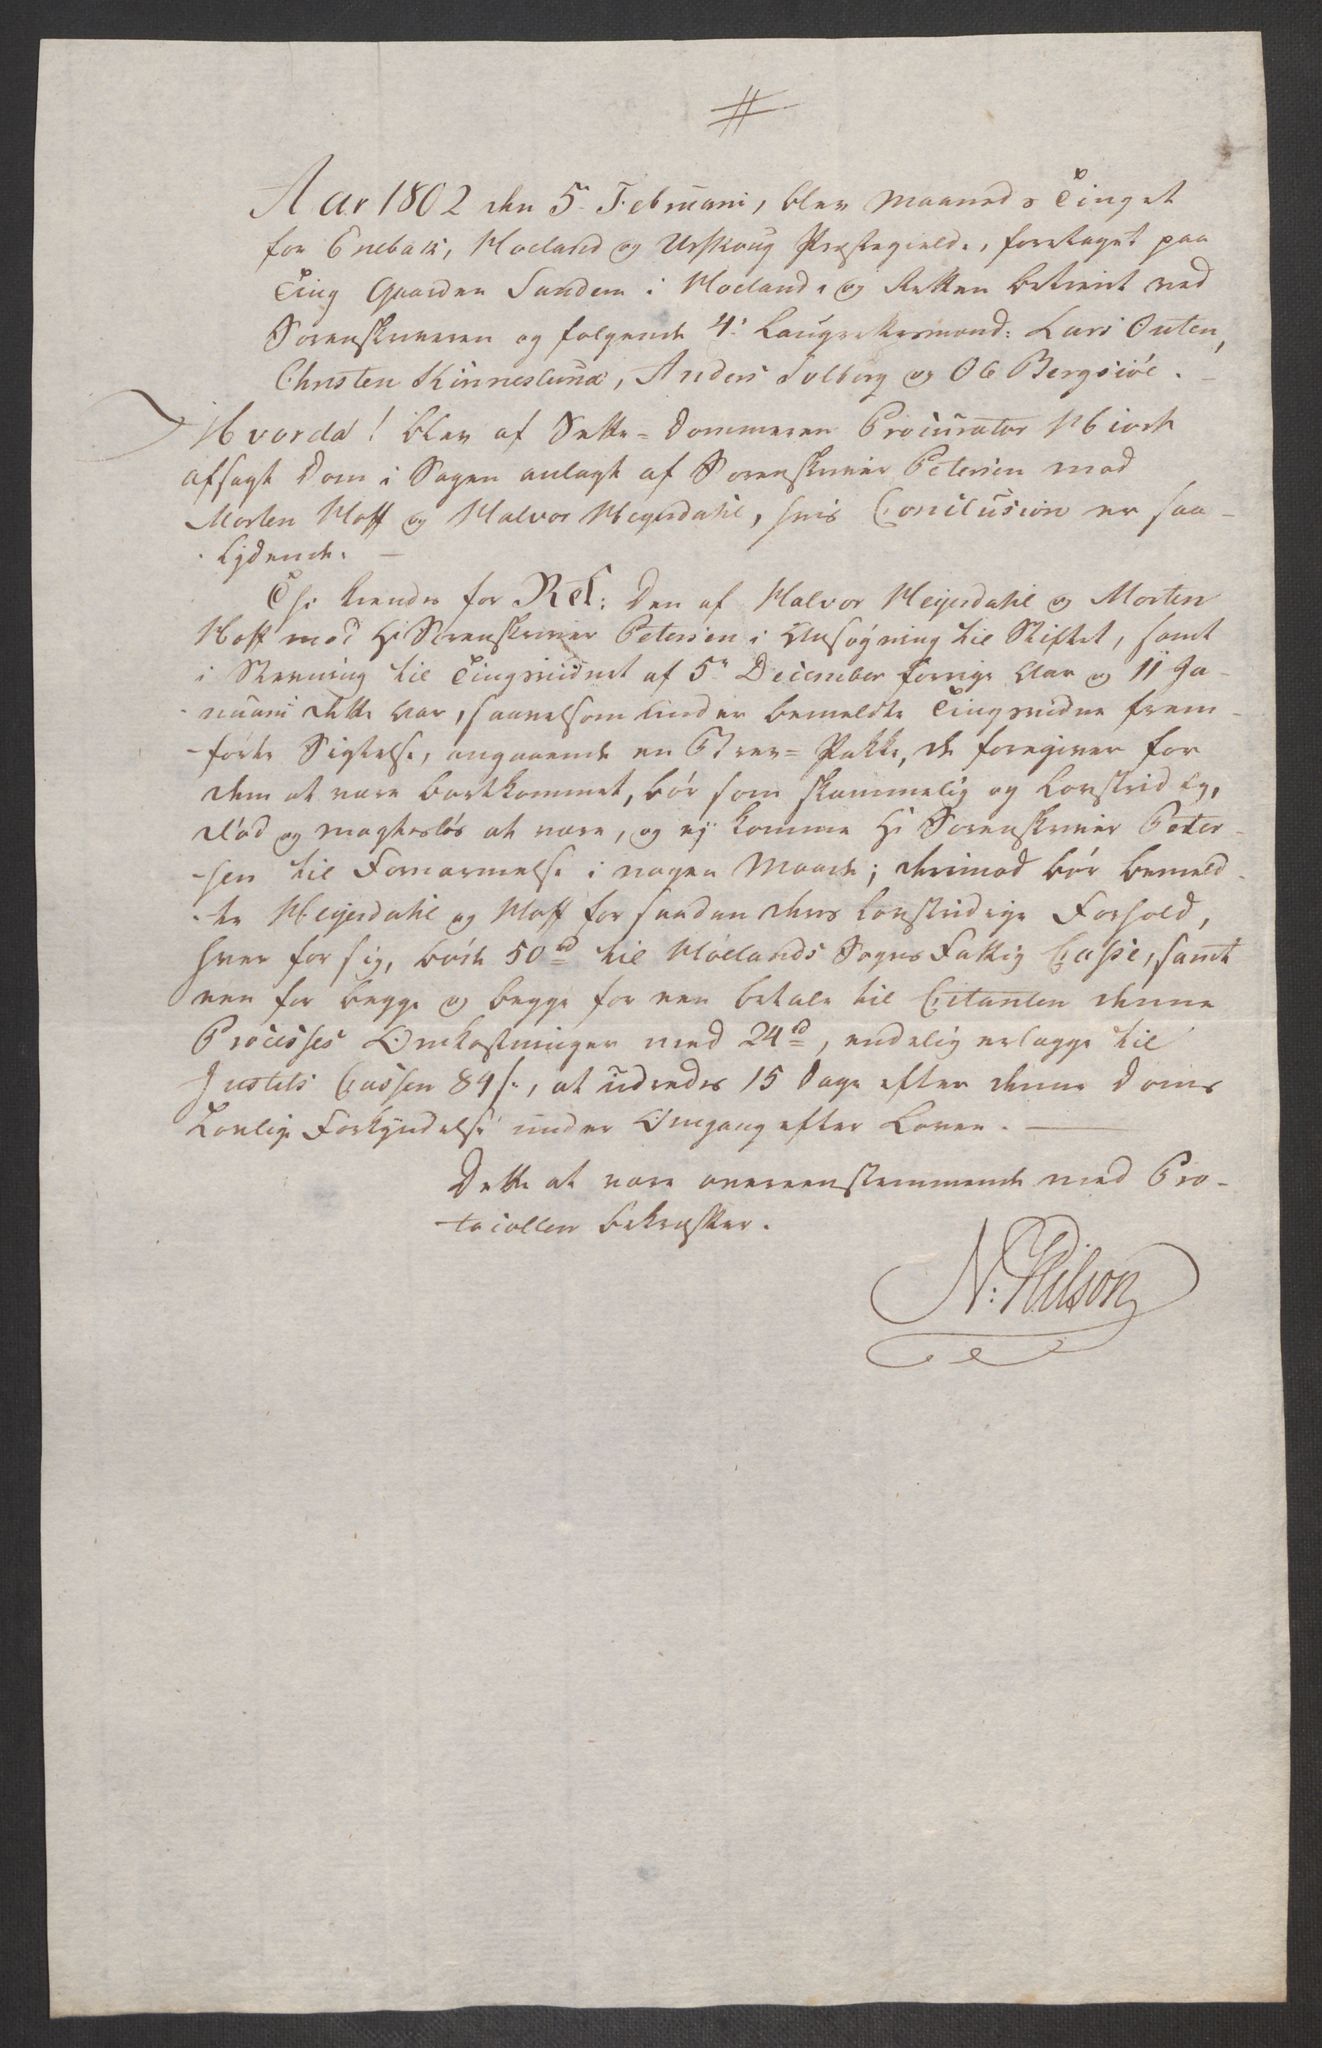 #
Aar 1802 den 5 Februarii, blev Maaneds Tinget
for Enebak, Hoeland og Urskoug Præstegields, foretaget paa
Ting Gaarden Sundem i Hoeland, og Retten betient ved
Sorenskriveren og følgende 4 Laugrettesmænd: Lars Outen,
Christen Kinneslund, Anders Solberg og Ole Bergsiøe. –
Hvorda! blev af Sætte=Dommeren Procurator Hiorth
afsagt Dom i Sagen anlagt af Sorenskriver Petersen mod
Morten Hoff og Halvor Heyerdahl, hvis Conclusion er saa-
lydende. –
Thi kiendes for Ret: Den af Halvor Heyerdahl og Morten
Hoff mod Hr Sorenskriver Petersen i Ansøgning til Stiftet, samt
i Stevning til Tingsvidnet af 5te December forrige Aar og 11 Ja-
nuarii dette Aar, saavelsom under bemeldte Tingsvidne frem-
-førte Sigtelse, angaaende en Brev=Pakke, de foregiver for
dem at være bortkommet, bør som skammelig og lovstridig,
død og magtesløs at være, og ej komme Hr Sorenskriver Peter-
-sen til Fornærmelse i nogen Maade; derimod bør bemeld-
-te Heyerdahl og Hoff for saadan deres lovstridige Forhold,
hver for sig, bøde 50 rd til Hølands Sogns Fattig Casse, samt
een for begge og begge for een betale til Citanten denne
Processes Omkostninger med 24 rd, endelig erlægge til
Justits Cassen 84 s., at udredes 15 Dage efter denne Doms
Lovlige Forkyndelse under Omgang efter Loven. –
Dette at være overeensstemmende med Pro-
-tocollen bekræfter.
N: Wilson